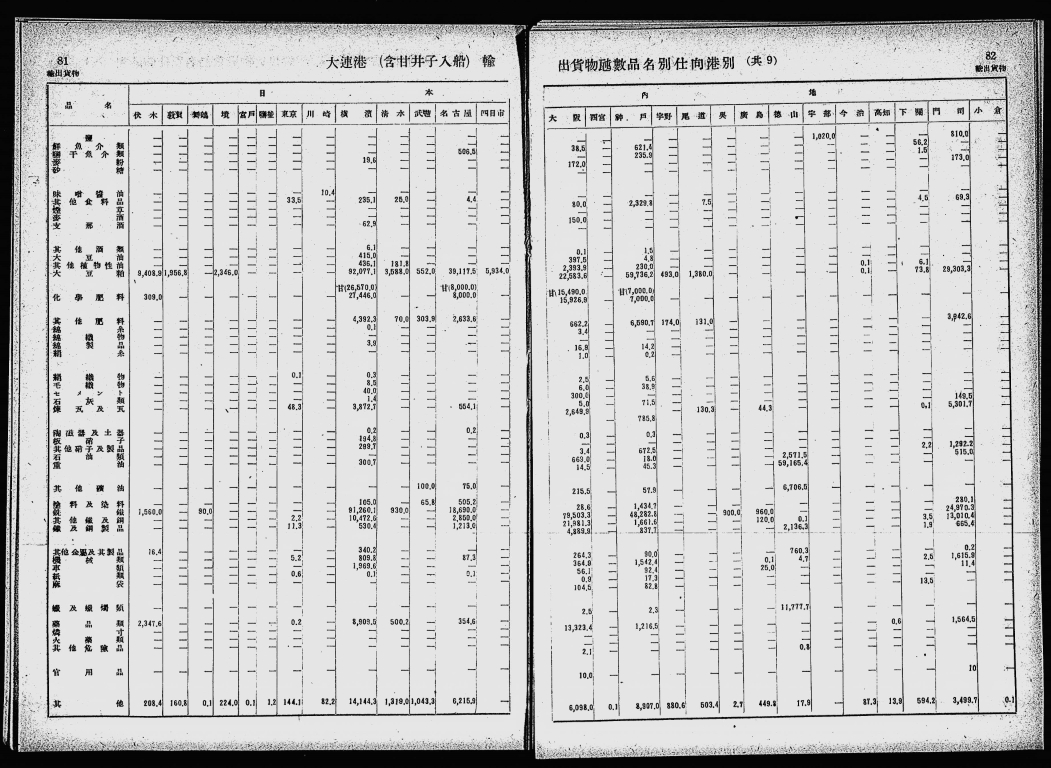 81
輸出貨物
大連港 (含甘井子入船) 輸
品 名
日 本
伏木 敦賀 舞鶴 境 宮戶 東京 川崎 橫濱 清水 武豐 名古屋 四日市
鹽
鮮魚介類 506,5
麥粉 19,6
砂糖
味噌醬油 10,4
其他食料品 33,5 235,1 25,0 4,4
麥酒
支那酒 62,9
其他酒類 6,1
大豆油 415,0
其他植物性油 436,1 181,8
大豆粕 9,408,9 1,956,8 2,346,0 92,077,1 3,588,0 552,0 39,117,5 5,934,0
甘(26,570,0) 甘(8,000,0)
化學肥料 309,0 27,446,0 8,000,0
其他肥料 4,392,3 70,0 303,9 2,633,6
綿糸 0,1
綿織物
綿製品 3,9
絹糸
絹織物 0,1 0,3
毛織物 8,5
セメント 40,0
石灰類 1,4
煉瓦及瓦 48,3 3,872,7 554,1
陶磁器及土器 0,2 0,2
板硝子 194,8
其他硝子及製品 299,7
石油類
重油 300,7
其他礦油 100,0 75,0
塗料及染料 105,0 65,8 505,2
銑鐵 1,560,0 90,0 91,260,1 930,0 18,690,0
其他鐵及鋼 2,2 10,472,6 2,850,0
鐵及鋼製品 11,3 530,4
其他金屬及其製品 340,2
機械類 5,2 809,8 87,3
車類 1,969,6
紙類 0,6 0,1 0,1
麻袋
蠟及蠟燭類
藥品類 2,347,6 0,2 8,909,5 500,2 354,6
燐寸
火藥類
其他危險品
官用品
其他 208,4 160,8 0,1 224,0 0,1 1,2 144,1 82,2 14,144,3 1,319,0 1,043,3 6,215,9
82
輸出貨物
出貨物噸數品名別仕向港別 (共9)
內 地
大阪 西宮 神戶 宇野 尾道 吳 廣島 德山 宇部 今治 高知 下關 門司 小倉
1,020,0 810,0
38,5 621,4 56,2
235,9 1,5
172,0 173,0
80,0 2,329,8 7,5 4,5 69,3
150,0
0,1 1,5
397,5 4,8
2,393,9 230,0 0,1 6,1
22,583,6 59,736,2 493,0 1,380,0 0,1 73,8 29,303,3
甘(15,490,0) 甘(7,000,0)
15,926,9 7,000,0
662,2 6,590,7 174,0 131,0 3,942,6
3,4
16,9 14,2
1,0 0,2
2,5 5,6
6,0 38,9
300,0 149,5
5,0 71,5 0,1 5,301,7
2,649,9 130,3 44,3
785,8
0,3 0,3
2,2 1,292,2
3,4 672,5 515,0
669,0 18,0 2,571,5
14,5 45,3 59,165,4
215,5 57,9 6,706,5
28,6 1,434,7 280,1
79,503,3 48,282,8 900,0 960,0 24,970,3
21,981,3 1,661,6 120,0 0,1 3,5 13,010,4
4,889,9 837,7 2,136,3 1,9 665,4
264,3 90,0 760,3 0,2
364,0 1,542,4 0,1 4,7 2,5 1,615,9
56,1 92,4 25,0 11,4
0,9 17,3
104,5 82,8 13,5
2,5 2,3 11,777,7
13,323,4 1,216,5 0,6 1,564,5
2,1 0,8
10,0 10
6,098,0 0,1 8,907,0 880,6 503,4 2,7 449,8 17,9 87,3 13,9 594,2 3,499,7 0,1